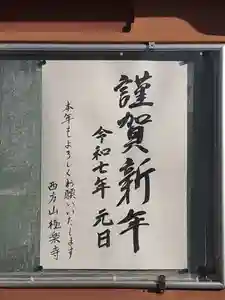 謹賀新年
令和七年 元日
本年もよろしくお願いいたします
西方山極楽寺